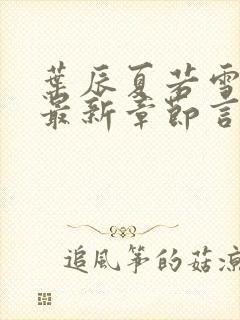 葉辰夏若雪
最新章節言
追風箏的菇涼